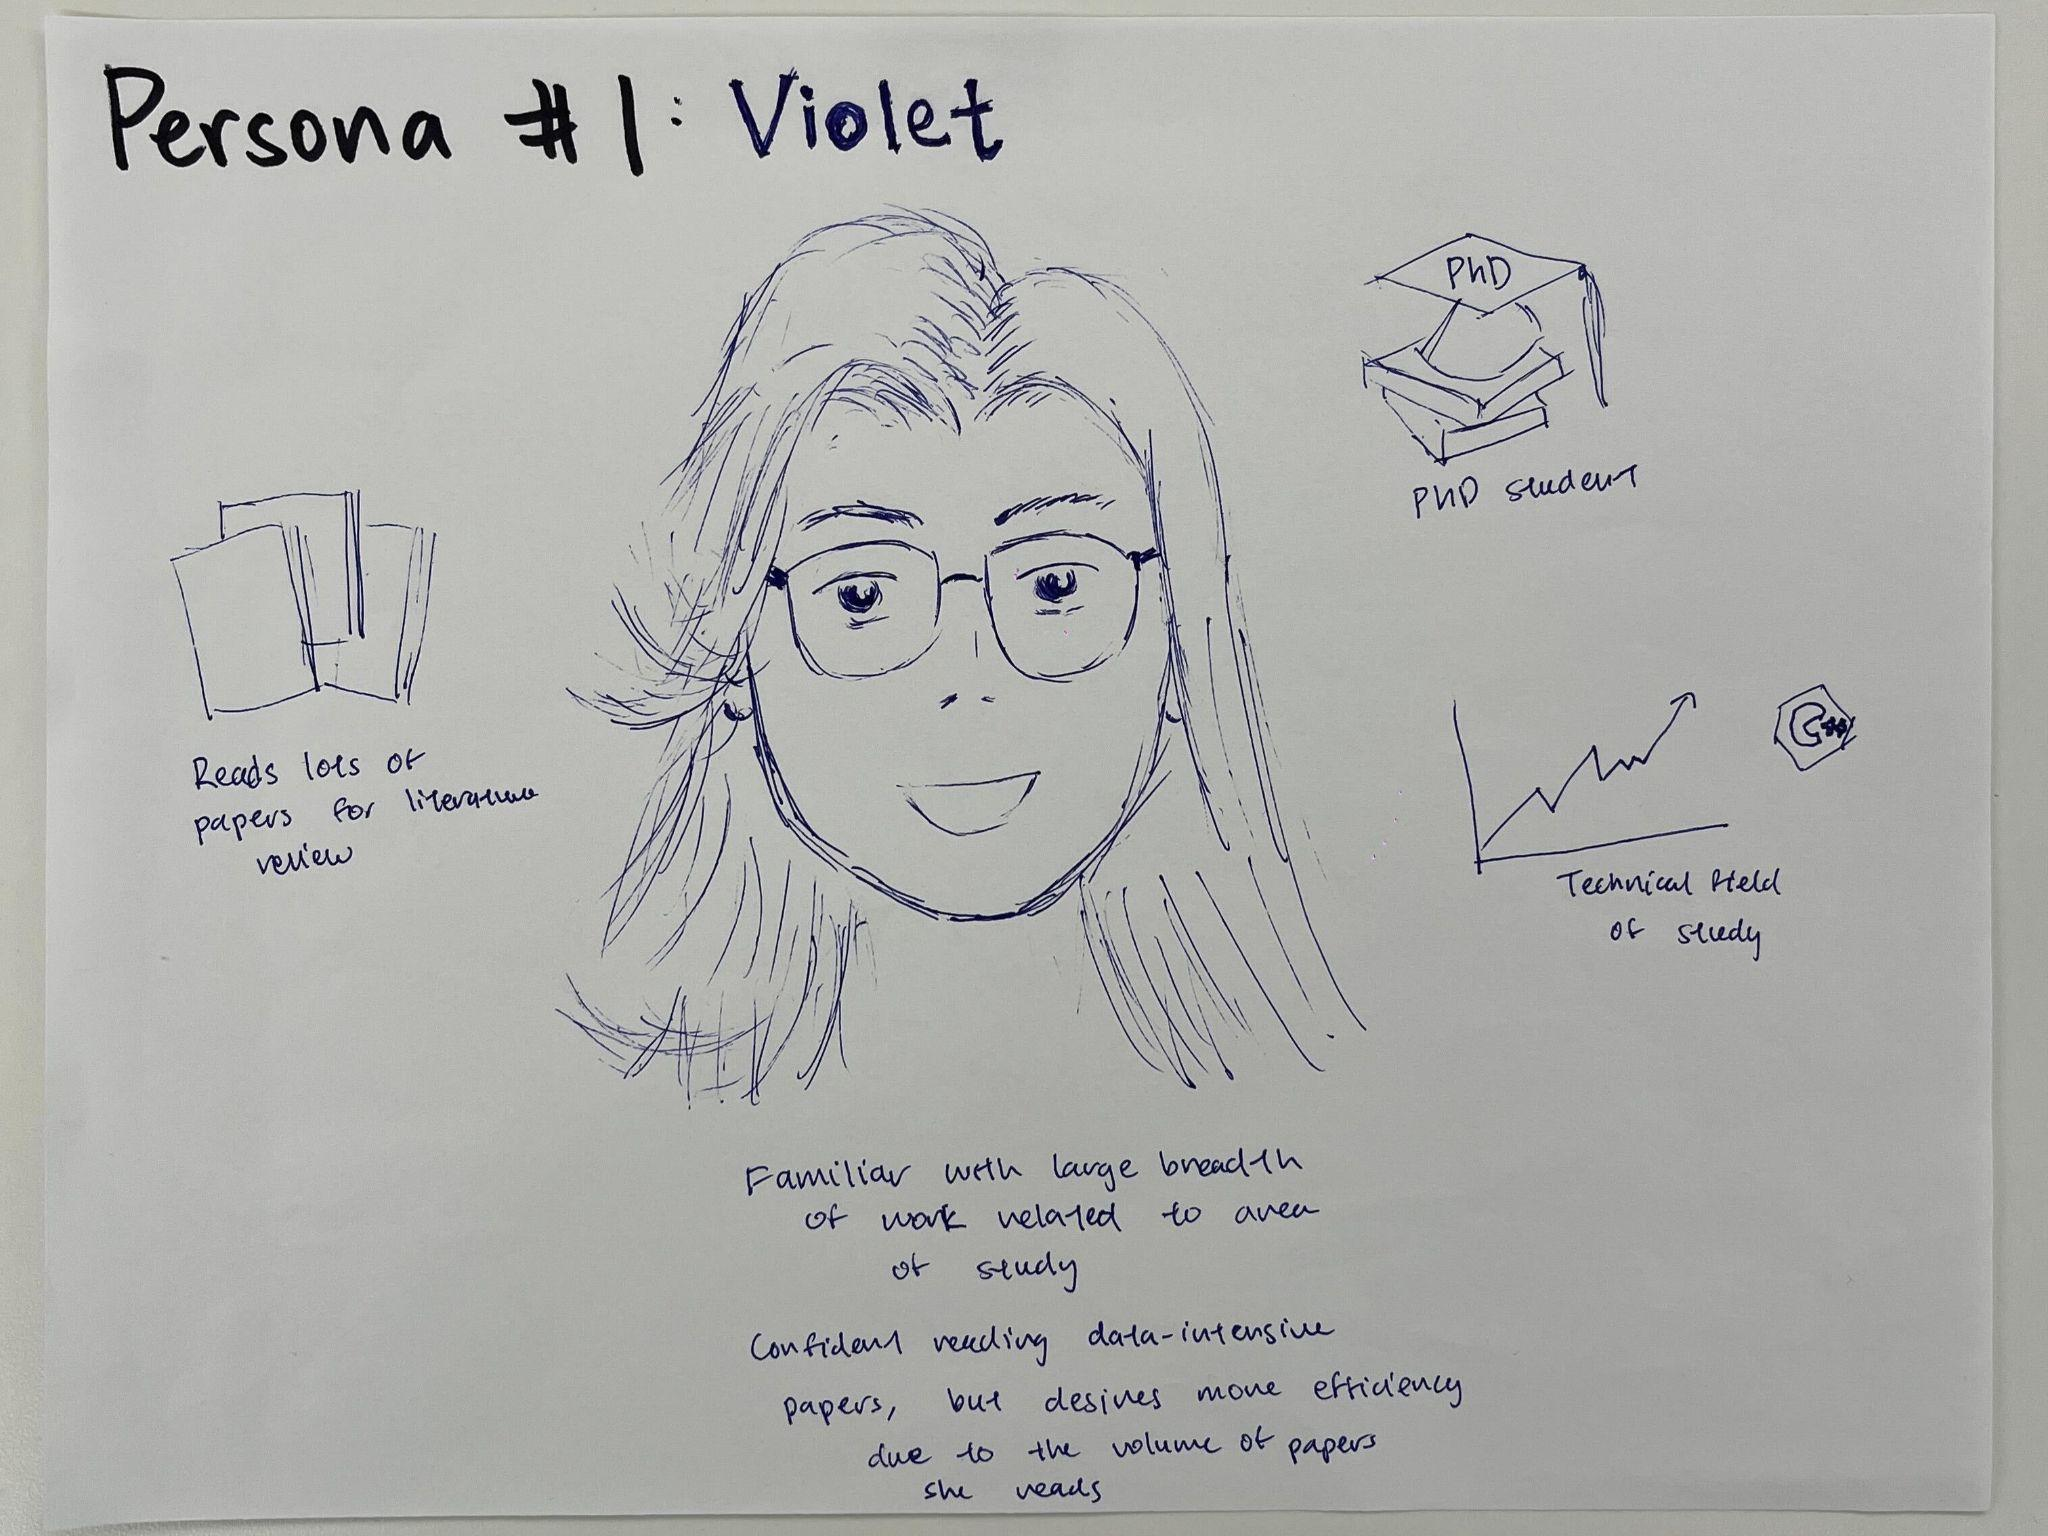 Persona #1: Violet
PhD
PHD student
Reads lots of
papers for literature
review
C++
Technical field
of study
Familiar with large breadth
of work related to area
of study
Confident reading data-intensive
papers, but desires more efficiency
due to the volume of papers
she reads